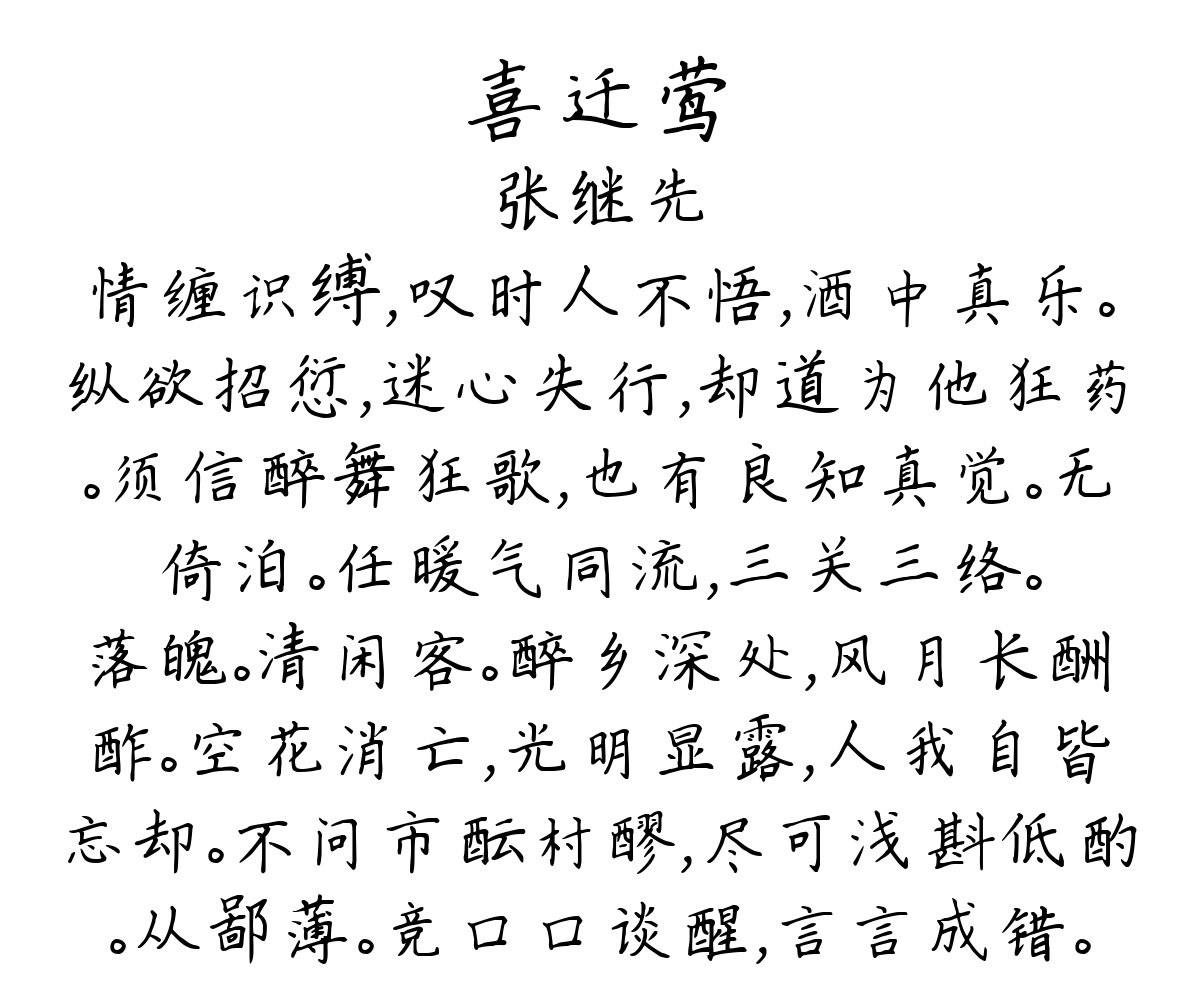 喜迁莺
张继先
情缠识缚,叹时人不悟,酒中真乐。
纵欲招愆,迷心失行,却道为他狂药
。须信醉舞狂歌,也有良知真觉。无
倚泊。任暖气同流,三关三络。
落魄。清闲客。醉乡深处,风月长酬
酢。空花消亡,光明显露,人我自皆
忘却。不问市酝村醪,尽可浅斟低酌
。从鄙薄。竞口口谈醒,言言成错。